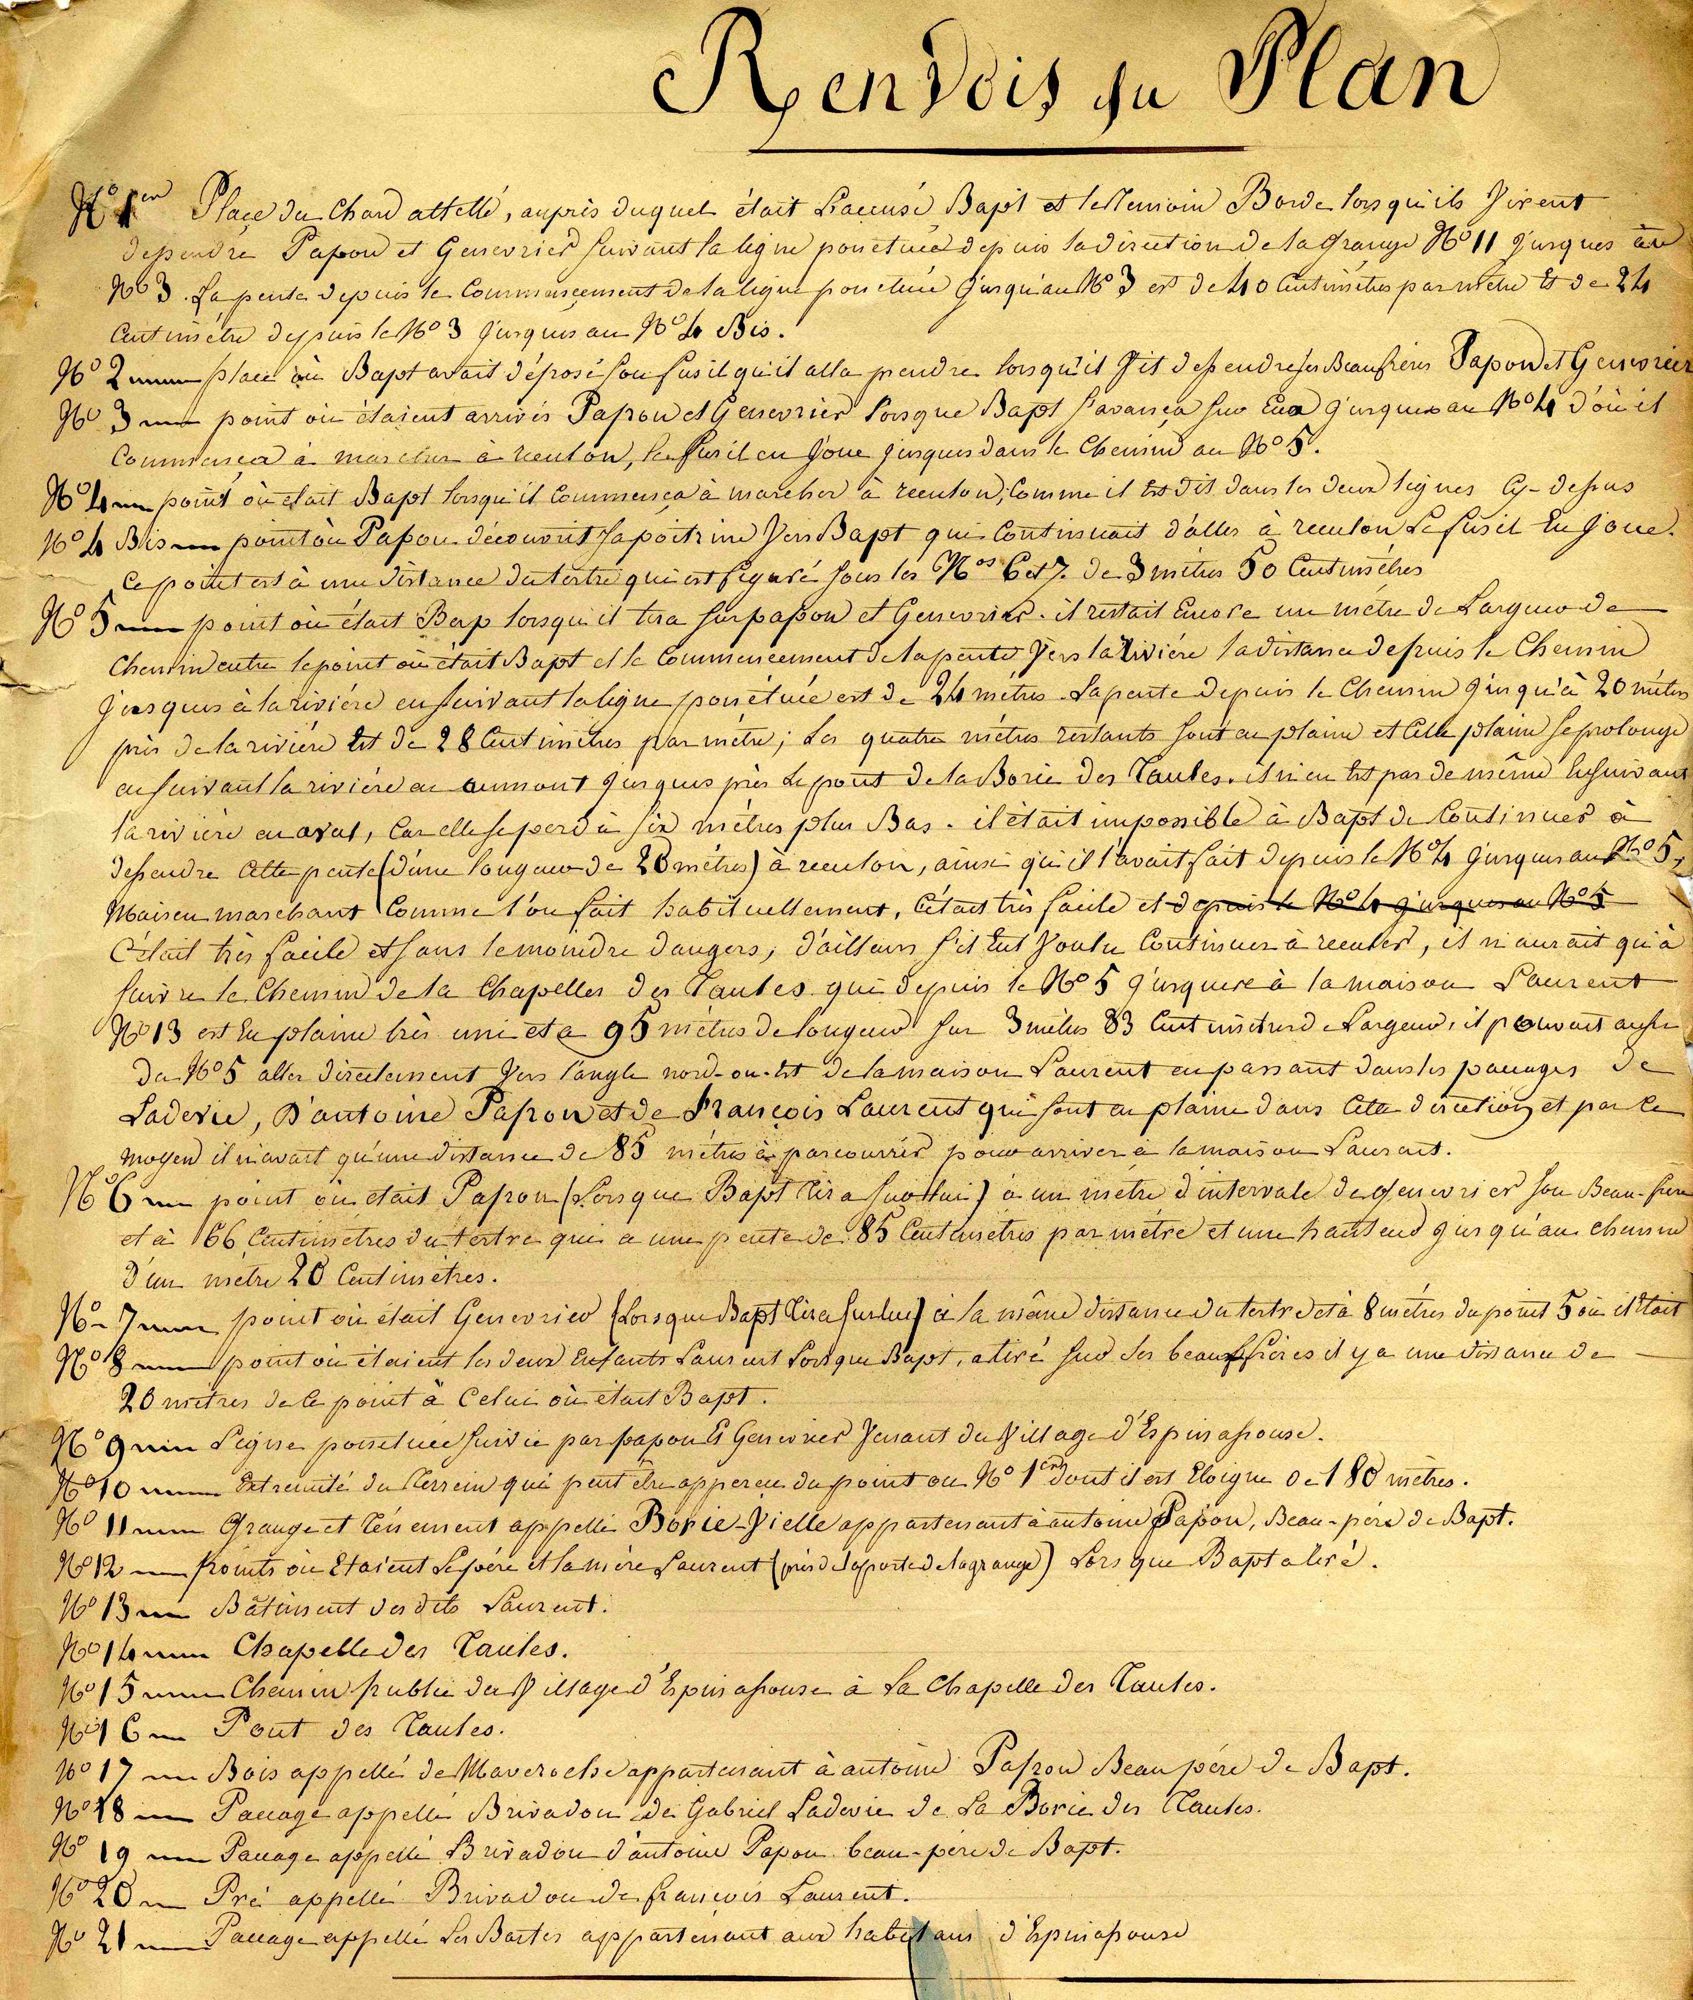 Renvois du Plan
N° 1er Place du Chard attellé, auprès duquel était L'accusé Bapt et le Temoin Borde lorsqu'ils virent
dessendre Papon et Genevrier suivant la ligne ponctuée depuis la direction de la grange N° 11 jusques au
N° 3. La pente depuis le Commencement de la ligne ponctuée jusqu'au N° 3 est de 40 Centimétres par métre Et de 24
Centimétre depuis le N° 3 jusques au N° 4 Bis.
N° 2 place où Bapt avait déposé son fusil qu'il alla prendre lorsqu'il vit dessendre ses Beaufréres Papon et Genevrier
N° 3 point où étaient arrivés Papon et Genevrier lorsque Bapt s'avança sur Eux jusques au N° 4 d'où il
Commença à marcher à reculon, le fusil en Joue jusques dans le Chemin au N° 5.
N° 4 point où était Bapt lorsqu'il Commença à marcher à reculon, Comme il Est dit dans les deux lignes Cy-dessus
N° 4 Bis point où Papon découvrit sa poitrine Vers Bapt qui Continuait d'aller à reculon Le fusil En Joue.
Ce point est à une distance du tertre qui est figuré sous les Nos 6 et 7. de 3 métres 50 Centimétres
N° 5 point où était Bap lorsqu'il tira sur papon et Genevrier. il restait Encore un métre de Largeur de
Chemin entre le point où était Bapt et le Commencement de la pente Vers la Riviére la distance depuis le Chemin
jusques à la riviére en suivant la ligne ponctuée est de 24 métres. La pente depuis le Chemin jusqu'à 20 métres
près de la riviére Est de 28 Centimétres par métre; Les quatre métres restants sont en plaine et Cette plaine se prolonge
en suivant la riviére en aumont jusques près Le pont de la Borie des Taules. il n'en Est pas de même En suivant
la riviére en aval, Car elle se perd à six métres plus Bas. il était impossible à Bapt de Continuer à
dessendre Cette pente (d'une longeur de 20 métres) à reculon, ainsi qu'il l'avait fait depuis le N° 4 jusques au N° 5,
Mais en marchant Comme l'on fait habituellement, C'était très facile et depuis le N° 4 jusques au N° 5
C'était très facile et sans le moindre dangers, d'aillaurs s'il Eut Voulu Continuer à reculer, il n'aurait qu'à
suivre le Chemin de la Chapelles des Taules qui depuis le N° 5 jusques à la maison Laurent
N° 13 est En plaine très uni et a 95 métres de longeur sur 3 métres 83 Centimétres de Largeur, il pouvait aussi
du N° 5 aller directement Vers l'angle nord-ou-Est de la maison Laurent en passant dans les paccages de
Laderie, D'antoine Papon et de François Laurent qui sont en plaine dans Cette direction et par Ce
moyen il n'avait qu'une distance de 85 métres à parcourrir pour arriver à la maison Laurent.
N° 6 point où était Papon (Lorsque Bapt Tira sur lui) à un métre d'intervale de genevrier son Beau-frere
et à 66 Centimétres du tertre qui a une pente de 85 Centimétres par métre et une hauteur jusqu'au chemin
d'un métre 20 Centimétres.
N° 7 point où était Genevrier (Lorsque Bapt Tira sur lui) à la même distance du tertre et à 8 métres du point 5 où il Etait
N° 8 point où étaient les deux Enfants Laurent Lorsque Bapt, a tiré sur ses beauffréres il y a une distance de
20 métres de Ce point à Celui où était Bapt.
N° 9 Ligne ponctuée suivie par papon Et Genevrier Venant du Village d'Espinassouse.
N° 10 Extremité du Terrein qui peut être apperçu du point ou N° 1er dont il est Eloigné de 180 métres.
N° 11 Grange et Ténement appellé Borie-Vielle appartenant à antoine Papon, Beau-pére de Bapt.
N° 12 points où Etaient Le pére et la mére Laurent (près de la porte de la grange) Lorsque Bapt a tiré.
N° 13 Bâtiment des dits Laurent.
N° 14 Chapelle des Taules.
N° 15 Chemin public du Village d'Espinassouse à La Chapelle des Taules.
N° 16 Pont des Taules.
N° 17 Bois appellé de Maveroche appartenant à antoine Papon Beau pére de Bapt.
N° 18 Paccage appellé Brivadou de Gabriel Laderie de La Borie des Taules.
N° 19 Paccage appellé Brivadou d'antoine Papon beau-pére de Bapt.
N° 20 Pré appellé Brivadou de françois Laurent.
N° 21 Paccage appellé Les Bartes appartenant aux habitans d'Espinassouse